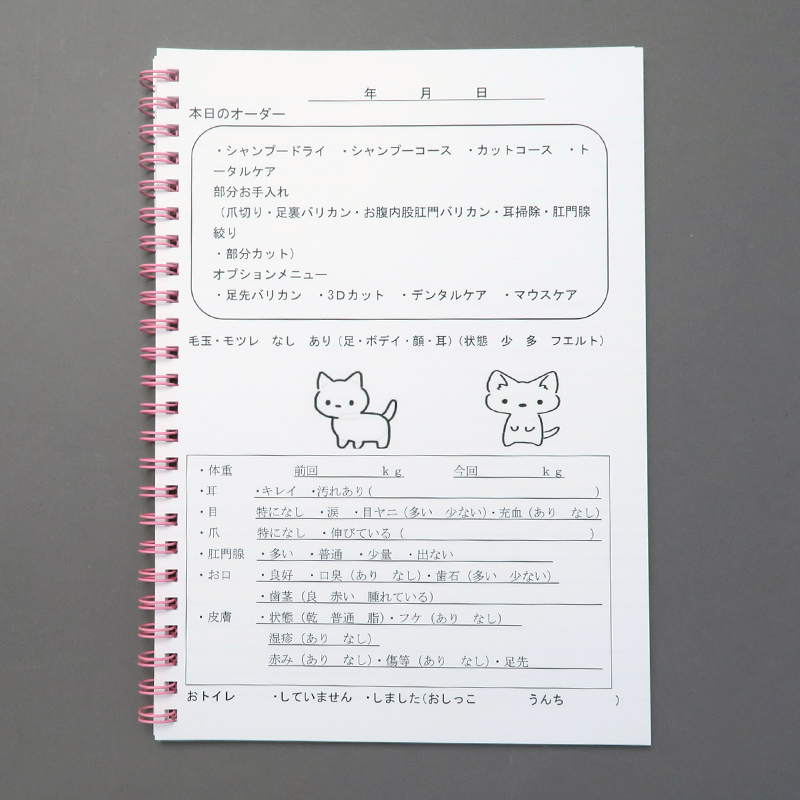 年　月　日
本日のオーダー
・シャンプードライ　・シャンプーコース　・カットコース　・ト
ータルケア
部分お手入れ
（爪切り・足裏バリカン・お腹内股肛門バリカン・耳掃除・肛門腺
絞り
・部分カット）
オプションメニュー
・足先バリカン　・3Dカット　・デンタルケア　・マウスケア
毛玉・モツレ　なし　あり（足・ボデイ・顔・耳）（状態　少　多　フエルト）
・体重　前回　kg　今回　kg
・耳　・キレイ　・汚れあり（　）
・目　特になし　・涙　・目ヤニ（多い　少ない）・充血（あり　なし）
・爪　特になし　・伸びている（　）
・肛門腺　・多い　・普通　・少量　・出ない
・お口　・良好　・口臭（あり　なし）・歯石（多い　少ない）
・歯茎（良　赤い　腫れている）
・皮膚　・状態（乾　普通　脂）・フケ（あり　なし）
湿疹（あり　なし）
赤み（あり　なし）・傷等（あり　なし）・足先
おトイレ　・していません　・しました（おしっこ　うんち　）